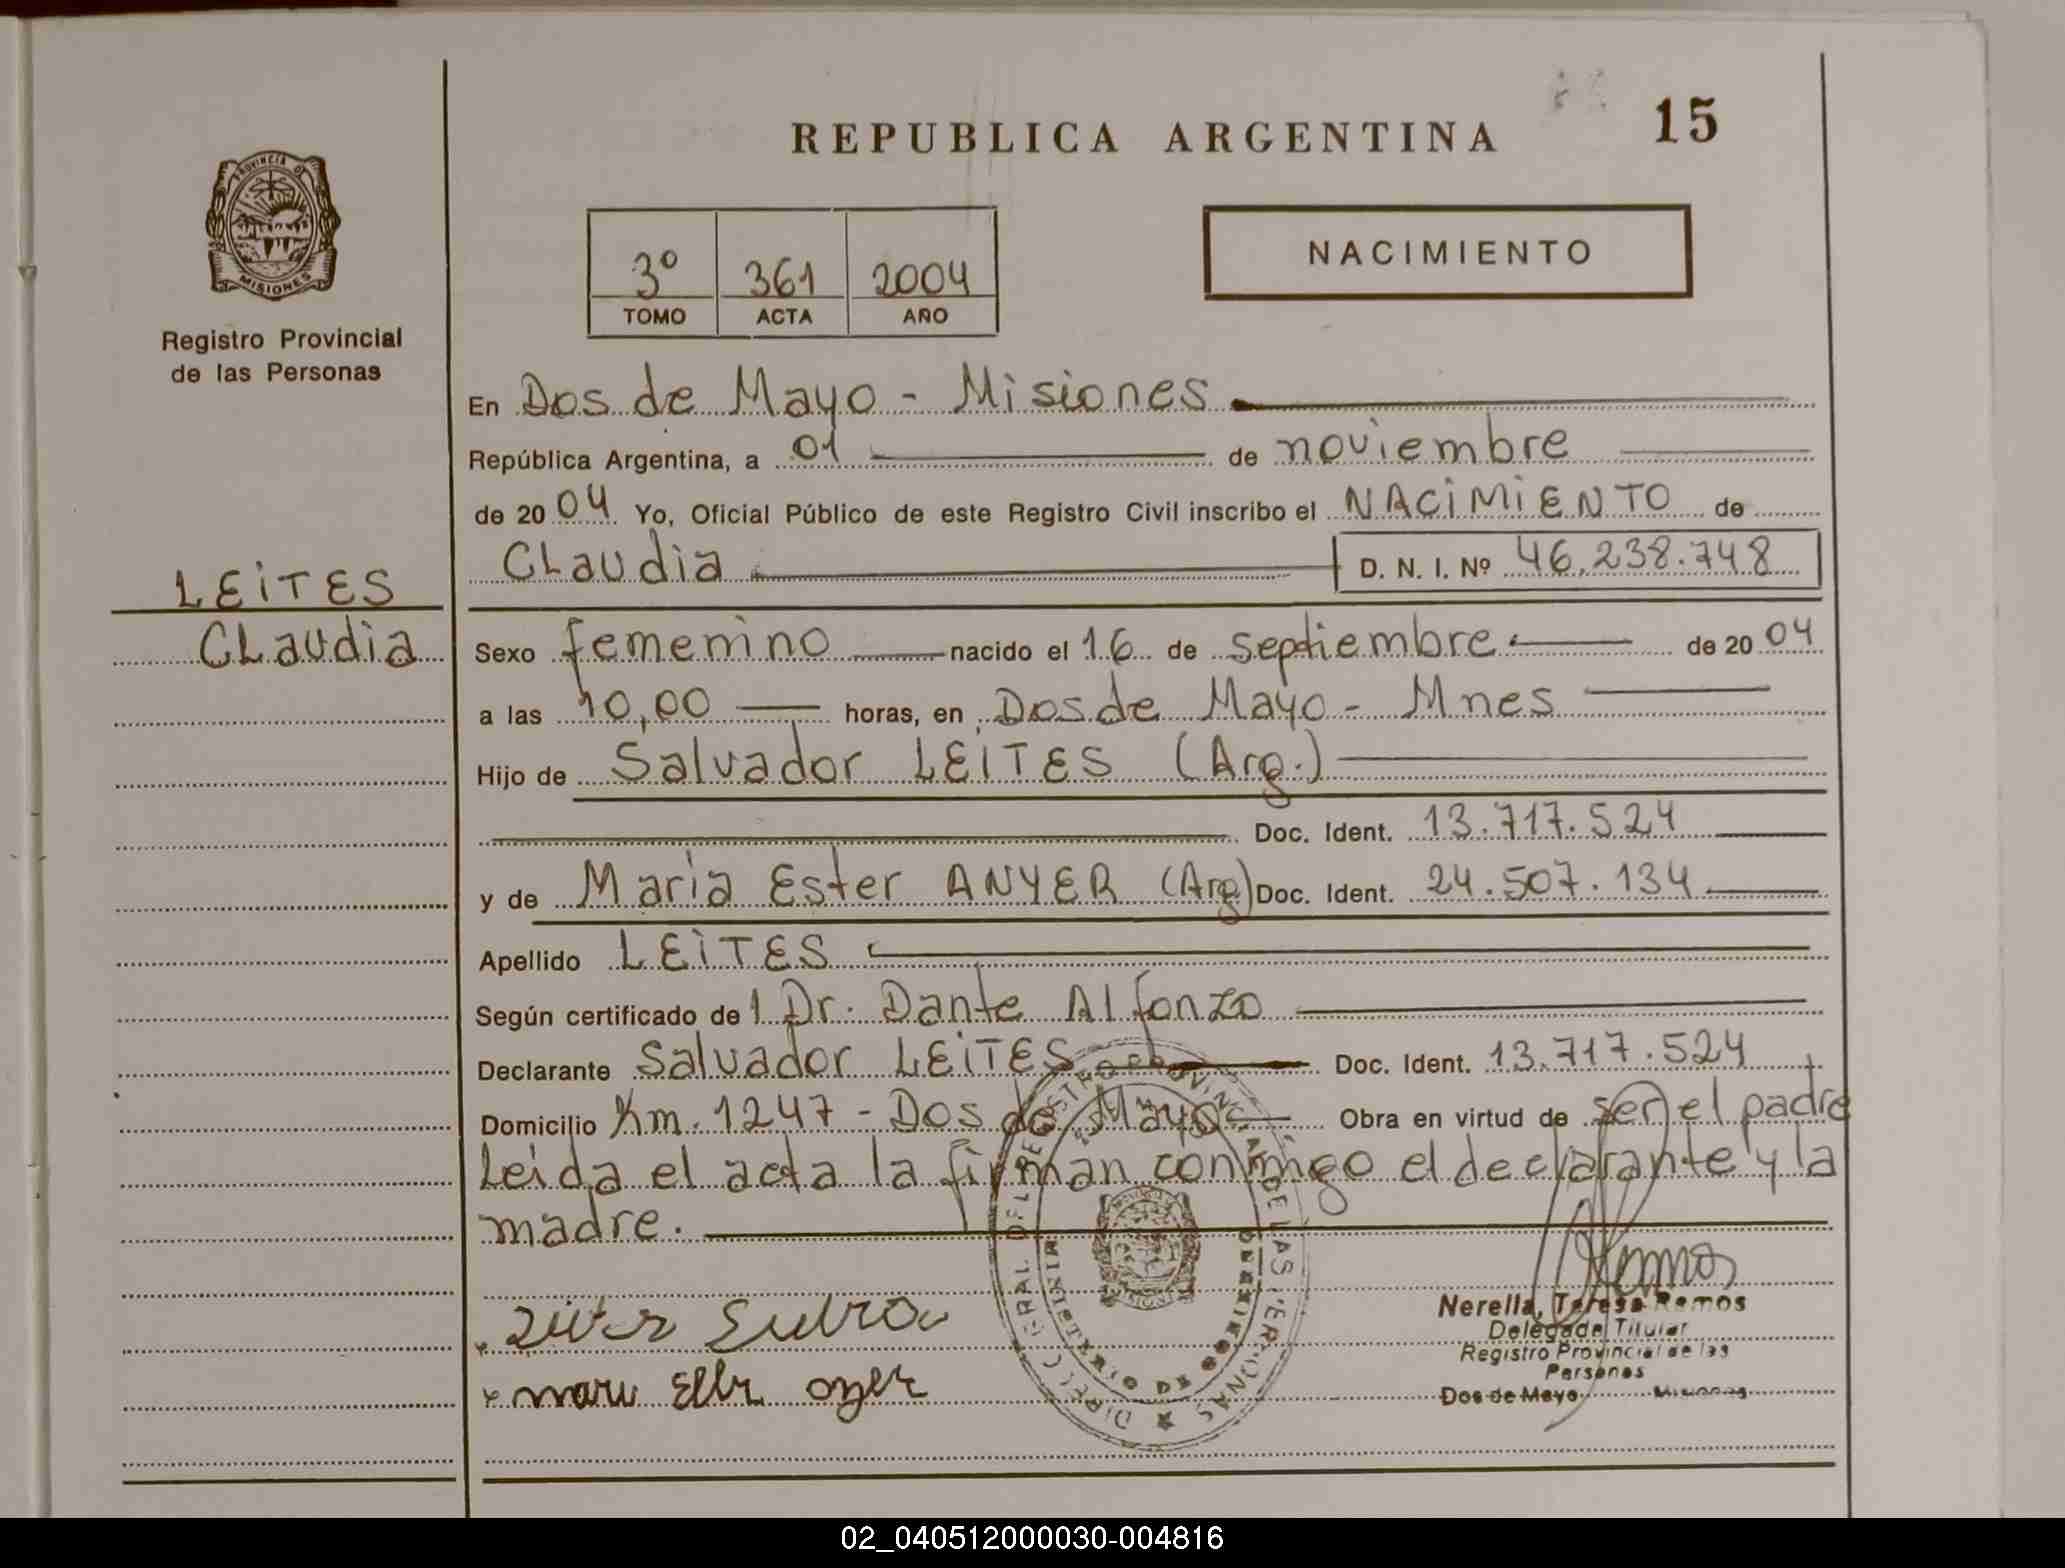 REPUBLICA ARGENTINA
15
PROVINCIA DE
MISIONES
Registro Provincial
de las Personas
3º 361 2004
TOMO ACTA AÑO
NACIMIENTO
En Dos de Mayo - Misiones
República Argentina, a 01 de noviembre
de 2004 Yo, Oficial Público de este Registro Civil inscribo el NACIMIENTO de
Claudia D. N. I. Nº 46.238.748
LEITES
Claudia
Sexo femenino nacido el 16 de septiembre de 2004
a las 10,00 horas, en Dos de Mayo - Mnes
Hijo de Salvador LEITES (Arg.)
Doc. Ident. 13.717.524
y de Maria Ester ANYER (Arg) Doc. Ident. 24.507.134
Apellido LEITES
Según certificado de 1 Dr. Dante Alfonzo
Declarante Salvador LEITES Doc. Ident. 13.717.524
Domicilio Km. 1247 - Dos de Mayo Obra en virtud de ser el padre
Leida el acta la firman conmigo el declarante y la
madre.
Nerella, Teresa Ramos
Delegada Titular
Registro Provincial de las
Personas
Dos de Mayo Misiones
02_040512000030-004816